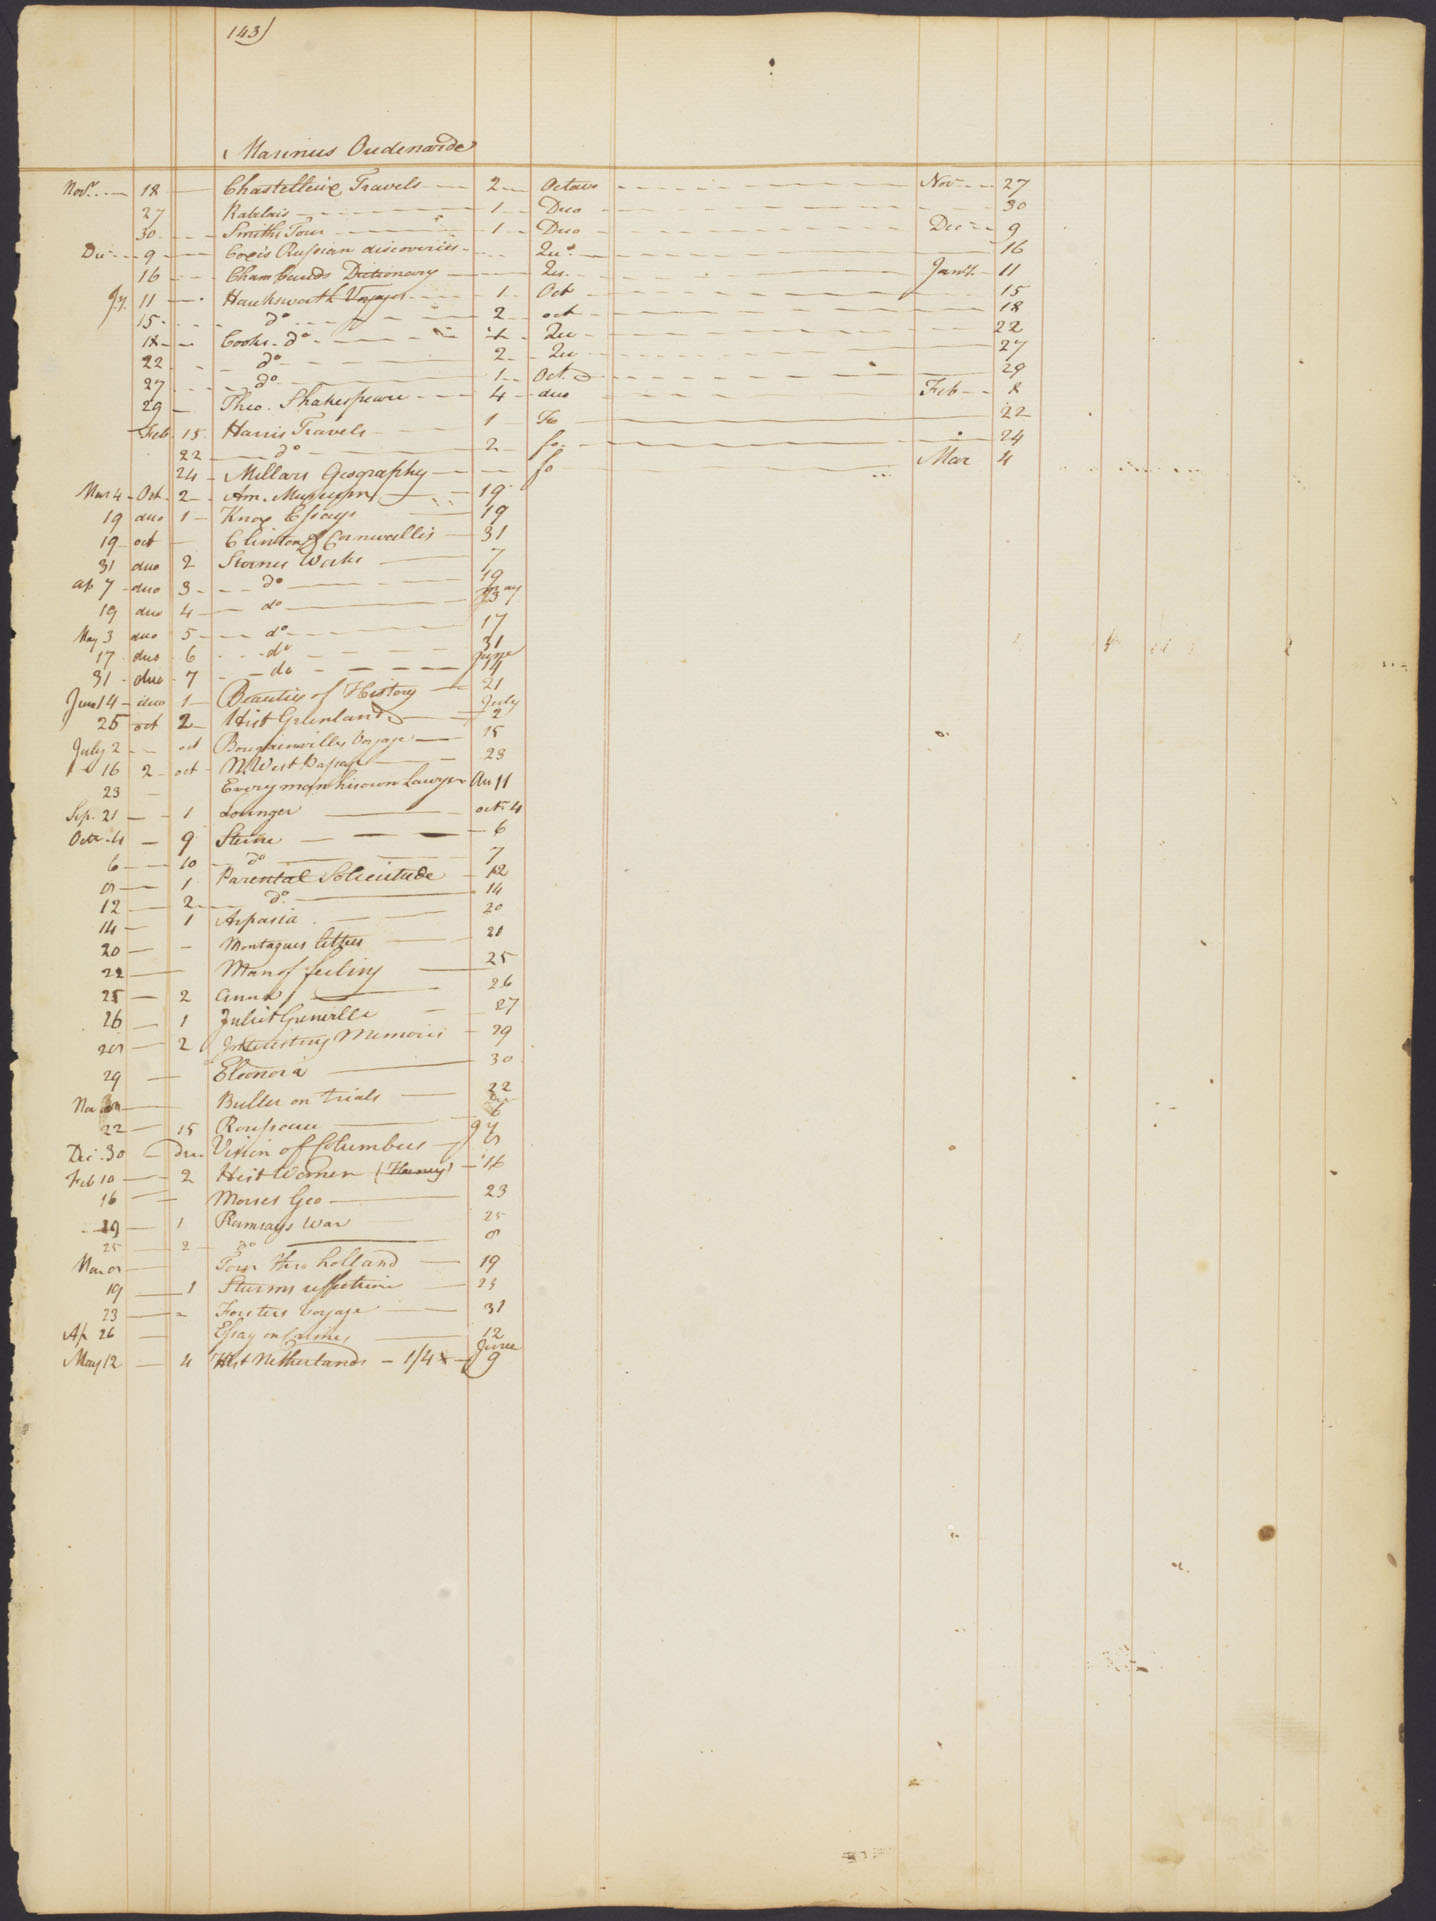 143)
Marinus Oudenarde
Novr. 18 Chastelleux Travels 2 Octavo Nov 27
27 Rabelais 1 Duo 30
30 Smiths Tour 1 Duo Dec 9
Dec 9 Coxe's Russian discoveries Qu.o 16
16 Chambauds Dictionary Qu. Jany. 11
Jy. 11 Hawksworth Voyages 1 Oct 15
15 do 2 oct 18
18 Cooks do 1 Qu 22
22 do 2 Qu 27
27 do 1 Oct. 29
29 Theo. Shakespeare 4 duo Feb 8
Feb 15 Harris Travels 1 Fo 22
22 do 2 fo. 24
24 Millars Geography fo Mar 4
Mar 4 Oct 2 Am. Museum 19
19 duo 1 Knox Essays 19
19 oct Clinton & Cornwallis 31
31 duo 2 Sternes Works 7
ap 7 duo 3 do 19
19 duo 4 do may 3
May 3 duo 5 do 17
17 duo 6 do 31
31 duo 7 do June 14
June 14 duo 1 Beauties of History 21
25 oct 2 Hist Greenland July 2
July 2 oct Bougainvilles Voyage 15
16 2 oct N. West Passage 23
23 Every man his own Lawyer Au 11
Sep. 21 1 Lounger octr 4
Octr. 4 9 Sterne 6
6 10 do 7
8 1 Parental Solicitude 12
12 2 do. 14
14 1 Aspasia 20
20 Montagues letters 21
22 Man of feeling 25
25 2 Anna 26
26 1 Juliet Grenville 27
28 2 Interesting Memoirs 29
29 Eleonora 30
Nov Buller on trials 22
22 15 Rousseau 6
Dec. 30 Duo Vision of Columbus
Feb 10 2 Hist Women (Henry) 16
16 Morses Geo 23
19 1 Ramsays War 25
25 2 do 8
Mar 8 Tour thro holland 19
19 1 Sturms reflections 23
23 Forsters Voyage 31
Ap 26 Essay on Crimes 12
May 12 4 Hist Netherlands 1/4 June 9